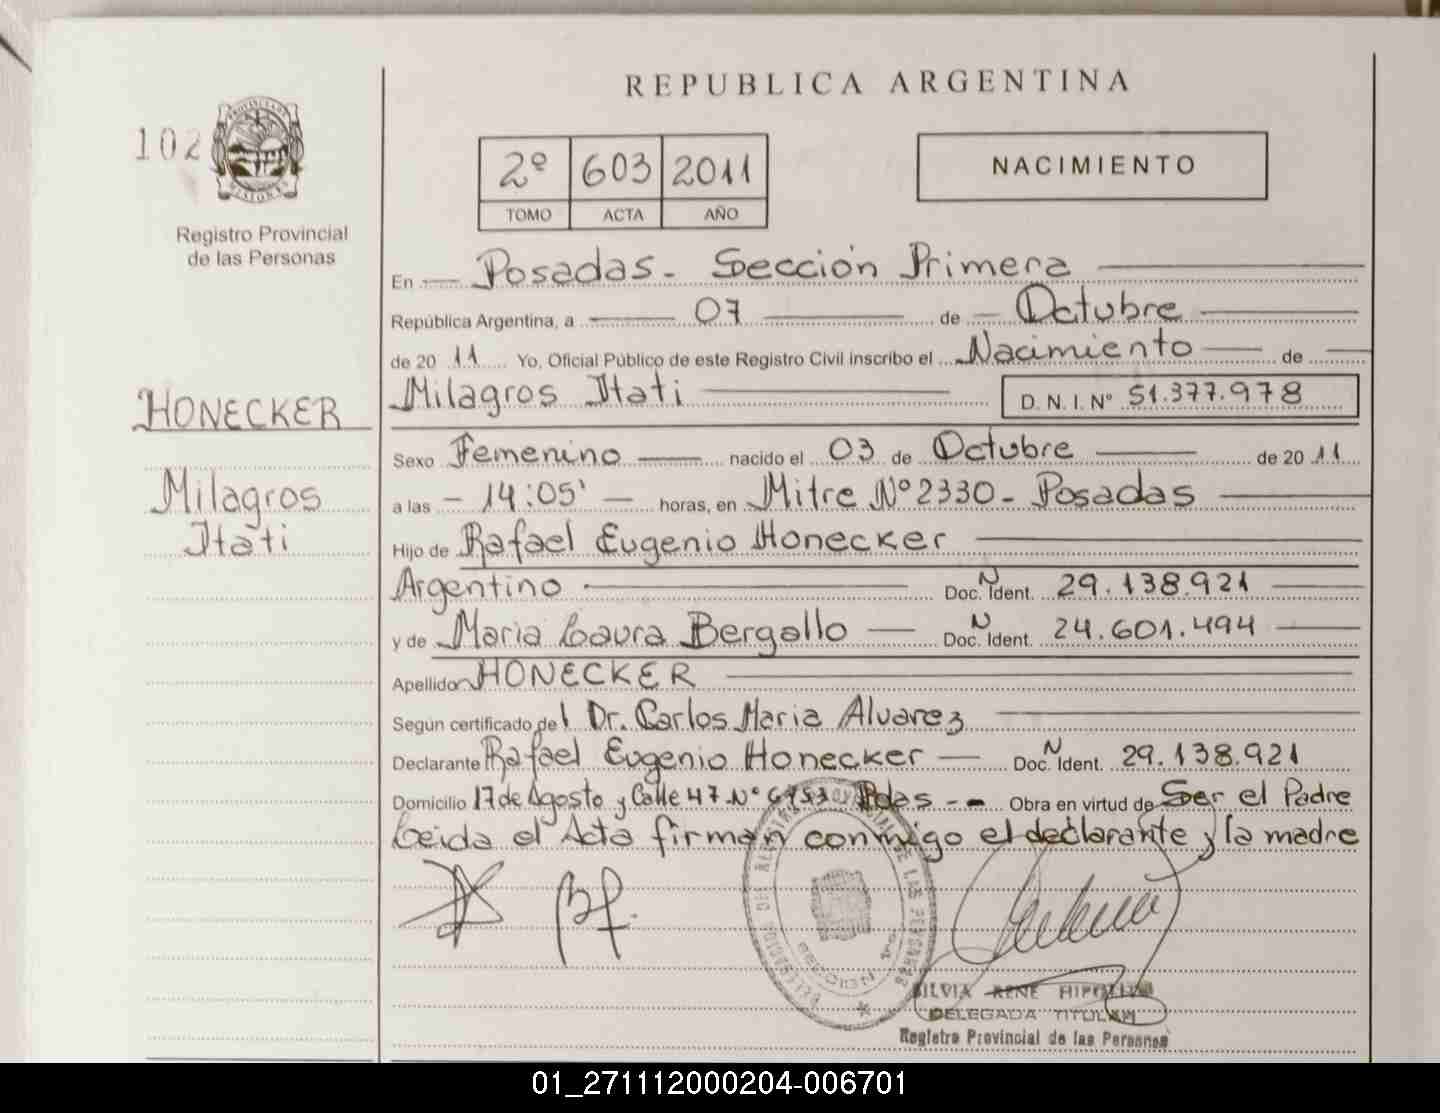 REPUBLICA ARGENTINA
102
2º 603 2011
TOMO ACTA AÑO
NACIMIENTO
Registro Provincial
de las Personas
En Posadas - Sección Primera
República Argentina, a 07 de Octubre
de 20 11 Yo, Oficial Público de este Registro Civil inscribo el Nacimiento de
HONECKER
Milagros Itati
D. N. I. Nº 51.377.978
Sexo Femenino nacido el 03 de Octubre de 20 11
Milagros
Itati
a las - 14:05' - horas, en Mitre Nº 2330 - Posadas
Hijo de Rafael Eugenio Honecker
Argentino Doc. N Ident. 29.138.921
y de Maria Laura Bergallo Doc. N Ident. 24.601.494
Apellido HONECKER
Según certificado del Dr. Carlos Maria Alvarez
Declarante Rafael Eugenio Honecker Doc. N Ident. 29.138.921
Domicilio 17 de Agosto y Calle 47 Nº Pdas -- Obra en virtud de Ser el Padre
Leida el Acta firman conmigo el declarante y la madre
SECCION 1ra
SILVIA RENE HIPOLITO
DELEGADA TITULAR
Registro Provincial de las Personas
01_271112000204-006701